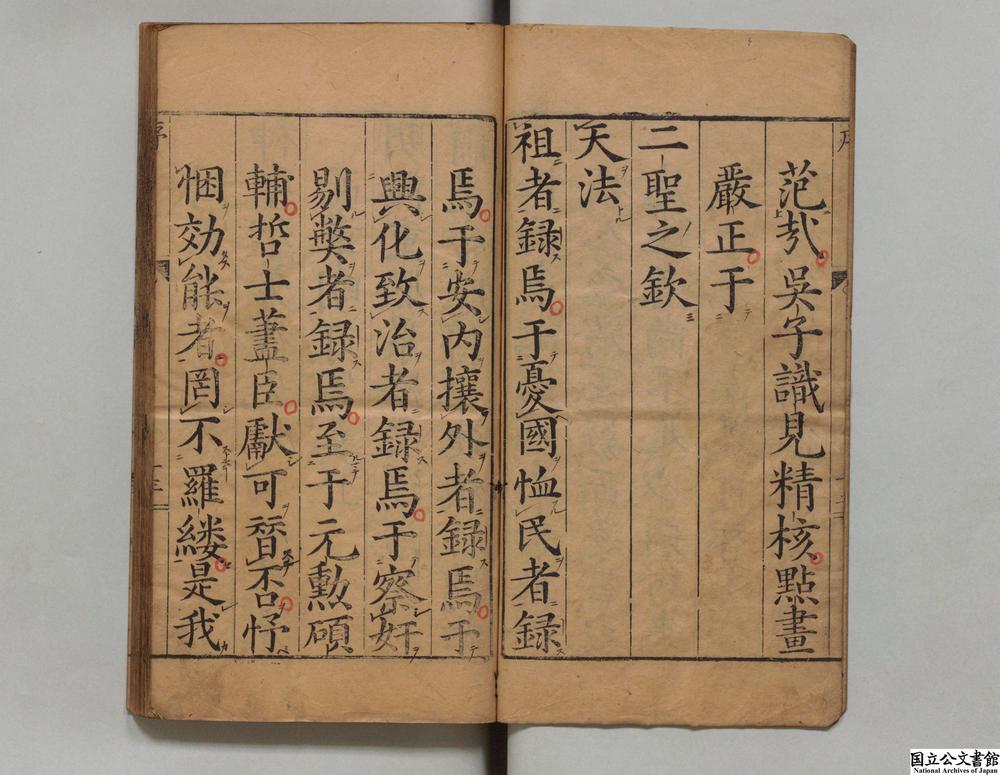 范哉吳子識見精核點畫
嚴正于
二聖之欽
天法
祖者録焉于憂國恤民者録
焉于安内攘外者録焉于
興化致治者録焉于察奸
剔弊者録焉至于元勲碩
輔哲士藎臣獻可替否抒
悃効能者罔不羅縷是我
序
国立公文書館
National Archives of Japan